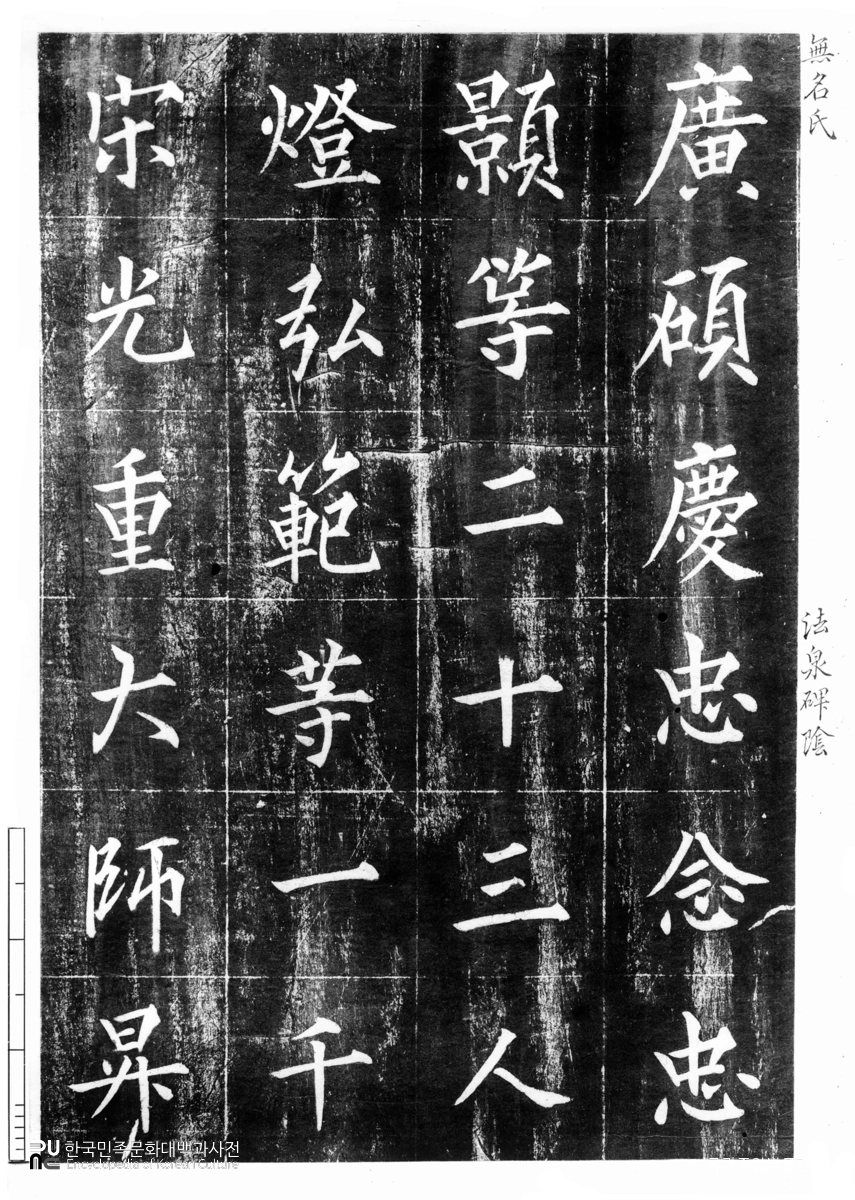 無名氏 法泉碑陰
廣碩慶忠念忠
顥等二十三人
燈弘範等一千
宋光重大師
한국민족문화대백과사전
Encyclopedia of Korean Culture